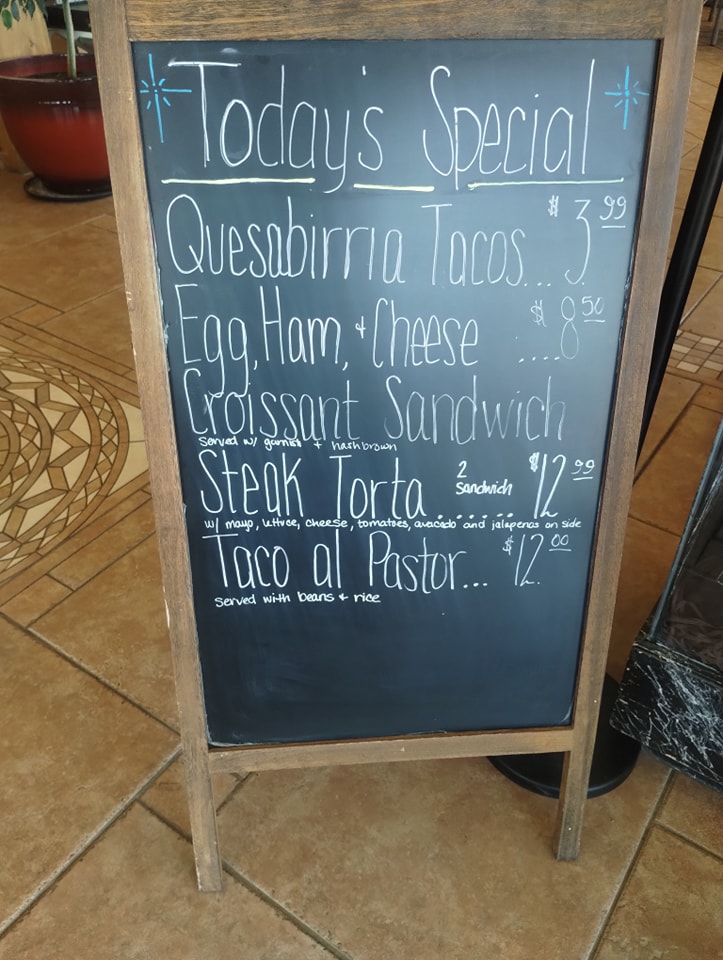 Today's Special
Quesabirria Tacos... $3.99
Egg, Ham, + Cheese ....$8.50
Croissant Sandwich
Served w/ garnish + hashbrown
Steak Torta...... 2 Sandwich $12.99
w/ mayo, lettuce, cheese, tomatoes, avacado and jalapenas on side
Taco al Pastor... $12.00
Served with beans + rice